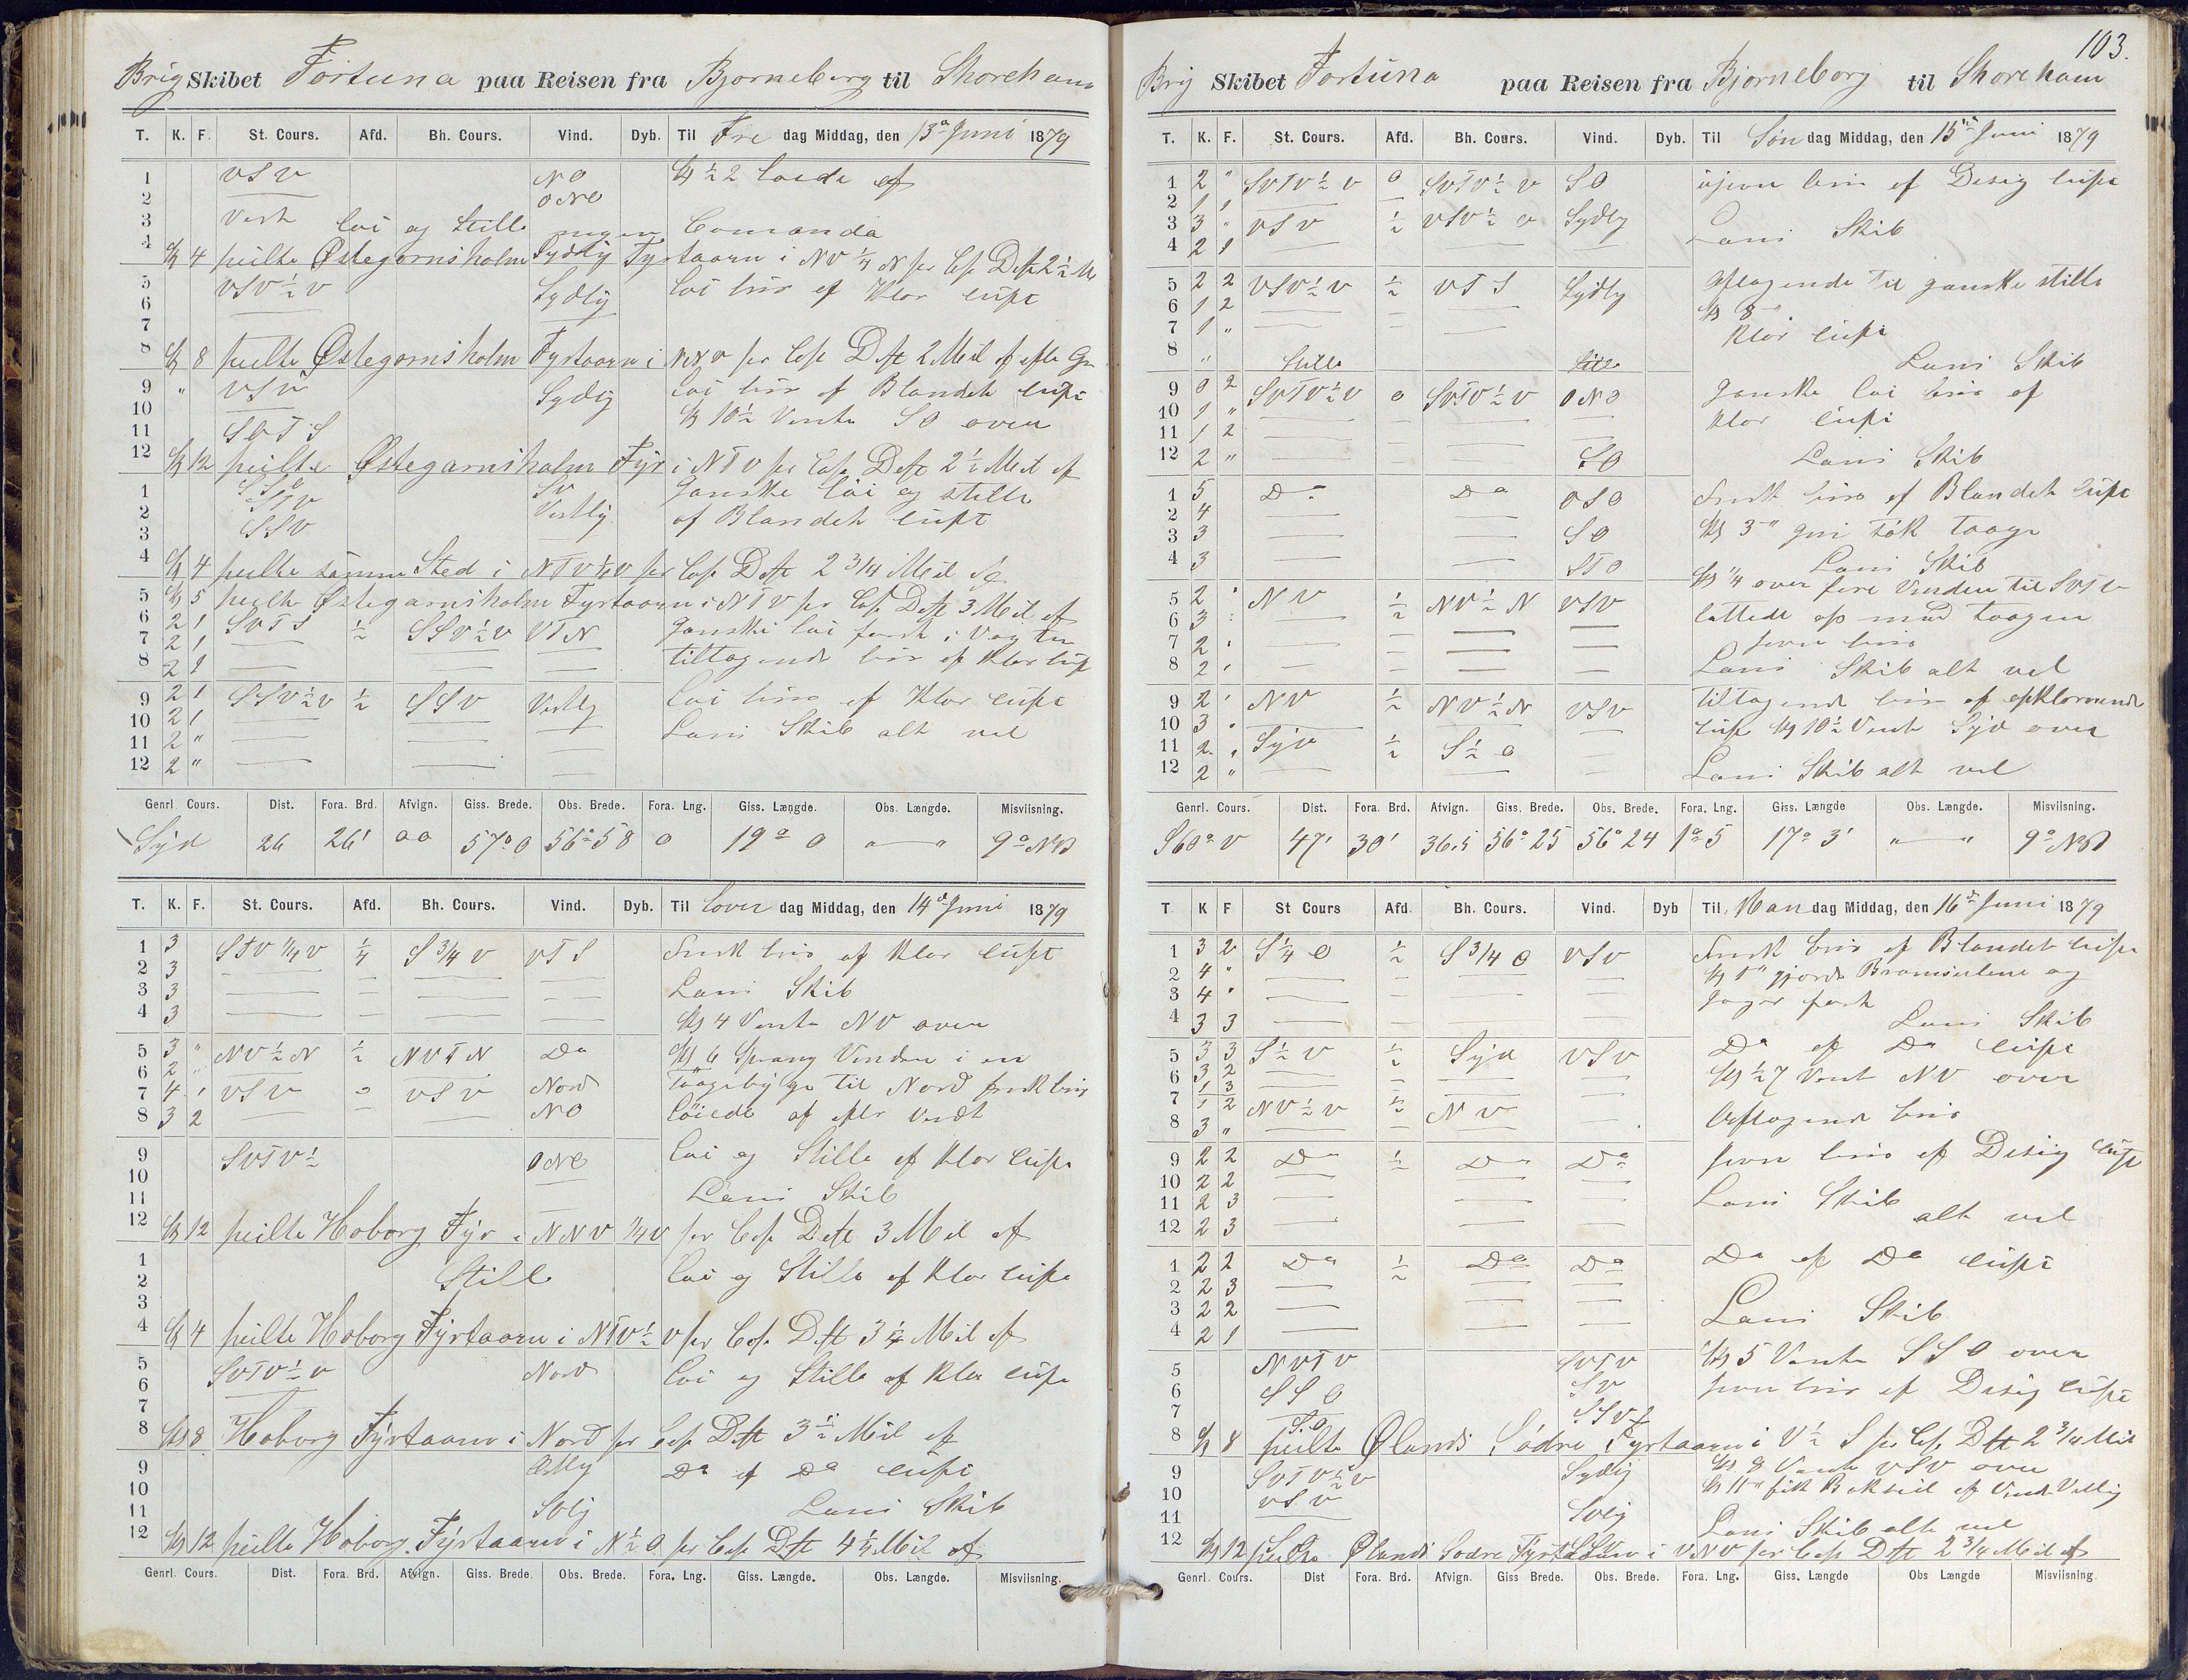 Brig Skibet Fortuna paa Reisen fra Bjorneborg til Shoreham
T. K. F. St. Cours. Afd. Bh. Cours. Vind. Dyb. Til Fre dag Middag, den 13de Juni 1879
1 VSV NO Kl ½2 loiede af
2 ONO
3 Vest loi og Stille ingen Comando
4 Kl 4 peilte Østegarnsholm Sydlig Fyrtaarn i NV ¼ N per Cop Dste 2½ M
5 VSV ½ V Sydlig loi bris af Klar luft
6
7
8 Kl 8 peilte Østegarnsholm Fyrtaarn i per Cop Dste 2 Mil af
9 " VSV Sydlig loi bris af Blandet luft
10 Kl 10½ Vente SO over
11 SOTS
12 Kl 12 peilte Østegarnsholm Fyr i NTV per Cop Dste 2½ Mil af
1 SV Ganske loi og stille
2 Vestlig af Blandet luft
3 SSV
4 Kl 4 peilte samme Sted i NTV ½ V per Cop Dste 2 3/4 Mil
5 Kl 5 peilte Østegarnsholm Fyrtaarn i NTV per Cop Dste 3 Mil af
6 2 1 SVTS ½ SSV ½ V VTN Ganske loi først i Vagten
7 2 1 tiltagende bris af Klar luft
8 2 1
9 2 1 SSV ½ V ½ SSV Vestlig loi bris af Klar luft
10 2 1 Læns Skib alt vel
11 2 "
12 2 "
Genrl. Cours. Dist. Fora. Brd. Afvign. Giss. Brede. Obs. Brede. Fora. Lng. Giss. Længde. Obs. Længde. Misviisning.
Syd 26 26' 00 57° 0 56° 58 0 19° 0 " — " 9° NV
T. K. F. St. Cours. Afd. Bh. Cours. Vind. Dyb. Til Lover dag Middag, den 14de Juni 1879
1 3 STV ¼ V ¼ S 3/4 V VTS Frisk bris af Klar luft
2 3 Læns Skib
3 3
4 3 Kl 4 Vente NV over
5 3 " NV ½ N ½ NVTN Do Kl 6 Sprang Vinden i en
6 2 " Taageby ge til Nord frisk bris
7 4 1 VSV 0 VSV Nord
8 3 2 NO loiede af efter Vendt
9 SVTV ½ ONO loi og Stille af Klar luft
10 Læns Skib
11
12 Kl 12 peilte Hoborg Fyr i NNV ¼ V per Cop Dste 3 Mil af
1 Stille loi og Stille af Klar luft
2
3
4 Kl 4 peilte Hoborg Fyrtaarn i NTV ½ V per Cop Dste 3 ½ Mil af
5 SVTV ½ V Nord loi og Stille af Klar luft
6
7
8 Kl 8 Hoborg Fyrtaarn i Nord per Cop Dste 3 ½ Mil af
9 Do af Do luft
10
11 Svlig Læns Skib
12 Kl 12 peilte Hoborg Fyrtaarn i N ½ O per Cop Dste 4 ¼ Mil af
Genrl. Cours. Dist. Fora. Brd. Afvign. Giss. Brede. Obs. Brede. Fora. Lng. Giss. Længde. Obs. Længde. Misviisning.
103.
Brig Skibet Fortuna paa Reisen fra Bjorneborg til Shoreham
T. K. F. St. Cours. Afd. Bh. Cours. Vind. Dyb. Til Søn dag Middag, den 15de Juni 1879
1 2 " SVTV ½ V 0 SVTV ½ V SO ujevn bris af Desig luft
2 1 1
3 3 " VSV ½ VSV ½ V Sydlig Læns Skib
4 2 1
5 2 2 VSV ½ V ½ VTS Sydlig Aftagende til ganske stille
6 1 2 Kl 8
7 1 " Klar luft
8 " Stille Stille Læns Skib
9 0 2 SVTV ½ V 0 SVTV ½ V ONO Ganske loi bris af
10 1 " Klar luft
11 1 2
12 2 " SO Læns Skib
1 5 Do Do OSO Frisk bris af Blandet luft
2 4
3 3 SO Kl 3 " tok Taage
4 3 STO Læns Skib
Kl ¼ over fire Vinden til SVTV
5 2 " NV ½ NV ½ N VSV lettede op med Taagen
6 3 jevn bris
7 2
8 2 Læns Skib alt vel
9 2 NV ½ NV ½ N VSV Tiltagende bris af opklarende
10 3 luft Kl 10½ Vent Syd over
11 2 Syd ½ S ½ O
12 2 " Læns Skib alt vel
Genrl. Cours. Dist. Fora. Brd. Afvign. Giss. Brede. Obs. Brede. Fora. Lng. Giss. Længde Obs. Længde. Misviisning.
S60° V 47' 30' 36.5 56° 25 56° 24 1° 5 17° 3' " — " 9° NV
T K F St Cours Afd. Bh. Cours. Vind. Dyb Til Man dag Middag, den 16de Juni 1879
1 3 2 S ¼ O ½ S 3/4 O VSV Frisk bris af Blandet luft
2 4 " Kl 1 " gjorde Bramseilene og
3 4 " Jager fast
4 3 3 Læns Skib
5 3 3 S ½ V ½ Syd VSV Do af Do luft
6 3 2 Kl ½ 7 Vent NV over
1 3
7 1 2 NV ½ V ½ NV
8 3 " Aftagende bris
9 2 2 Do ½ Do Do jevn bris af Desig luft
10 2 2
11 2 3 Læns Skib
12 2 3 alt vel
1 2 2 Do ½ Do Do Do af Do luft
2 2 3
3 2 2 Læns Skib
4 2 1
5 NVTV SVTV Kl 5 Vente SSO over
6 SSO SV jevn bris af Desig luft
7 SSV
8 Kl 8 peilte Ølands Södre Fyrtaarn i V ½ S per Cop Dste 2 3/4 Mil
9 SVTV ½ V Sydlig Kl 8 Vente VSV over
10 VSV Kl 11 "
11 Svlig Læns Skib alt vel
12 Kl 12 peilte Ølands Sodre Fyrtaarn i VNV per Cop Dste 2 3/4 Mil af
Genrl. Cours. Dist Fora. Brd. Afvign. Giss Brede. Obs. Brede. Fora. Lng. Giss. Længde Obs Længde Misviisning